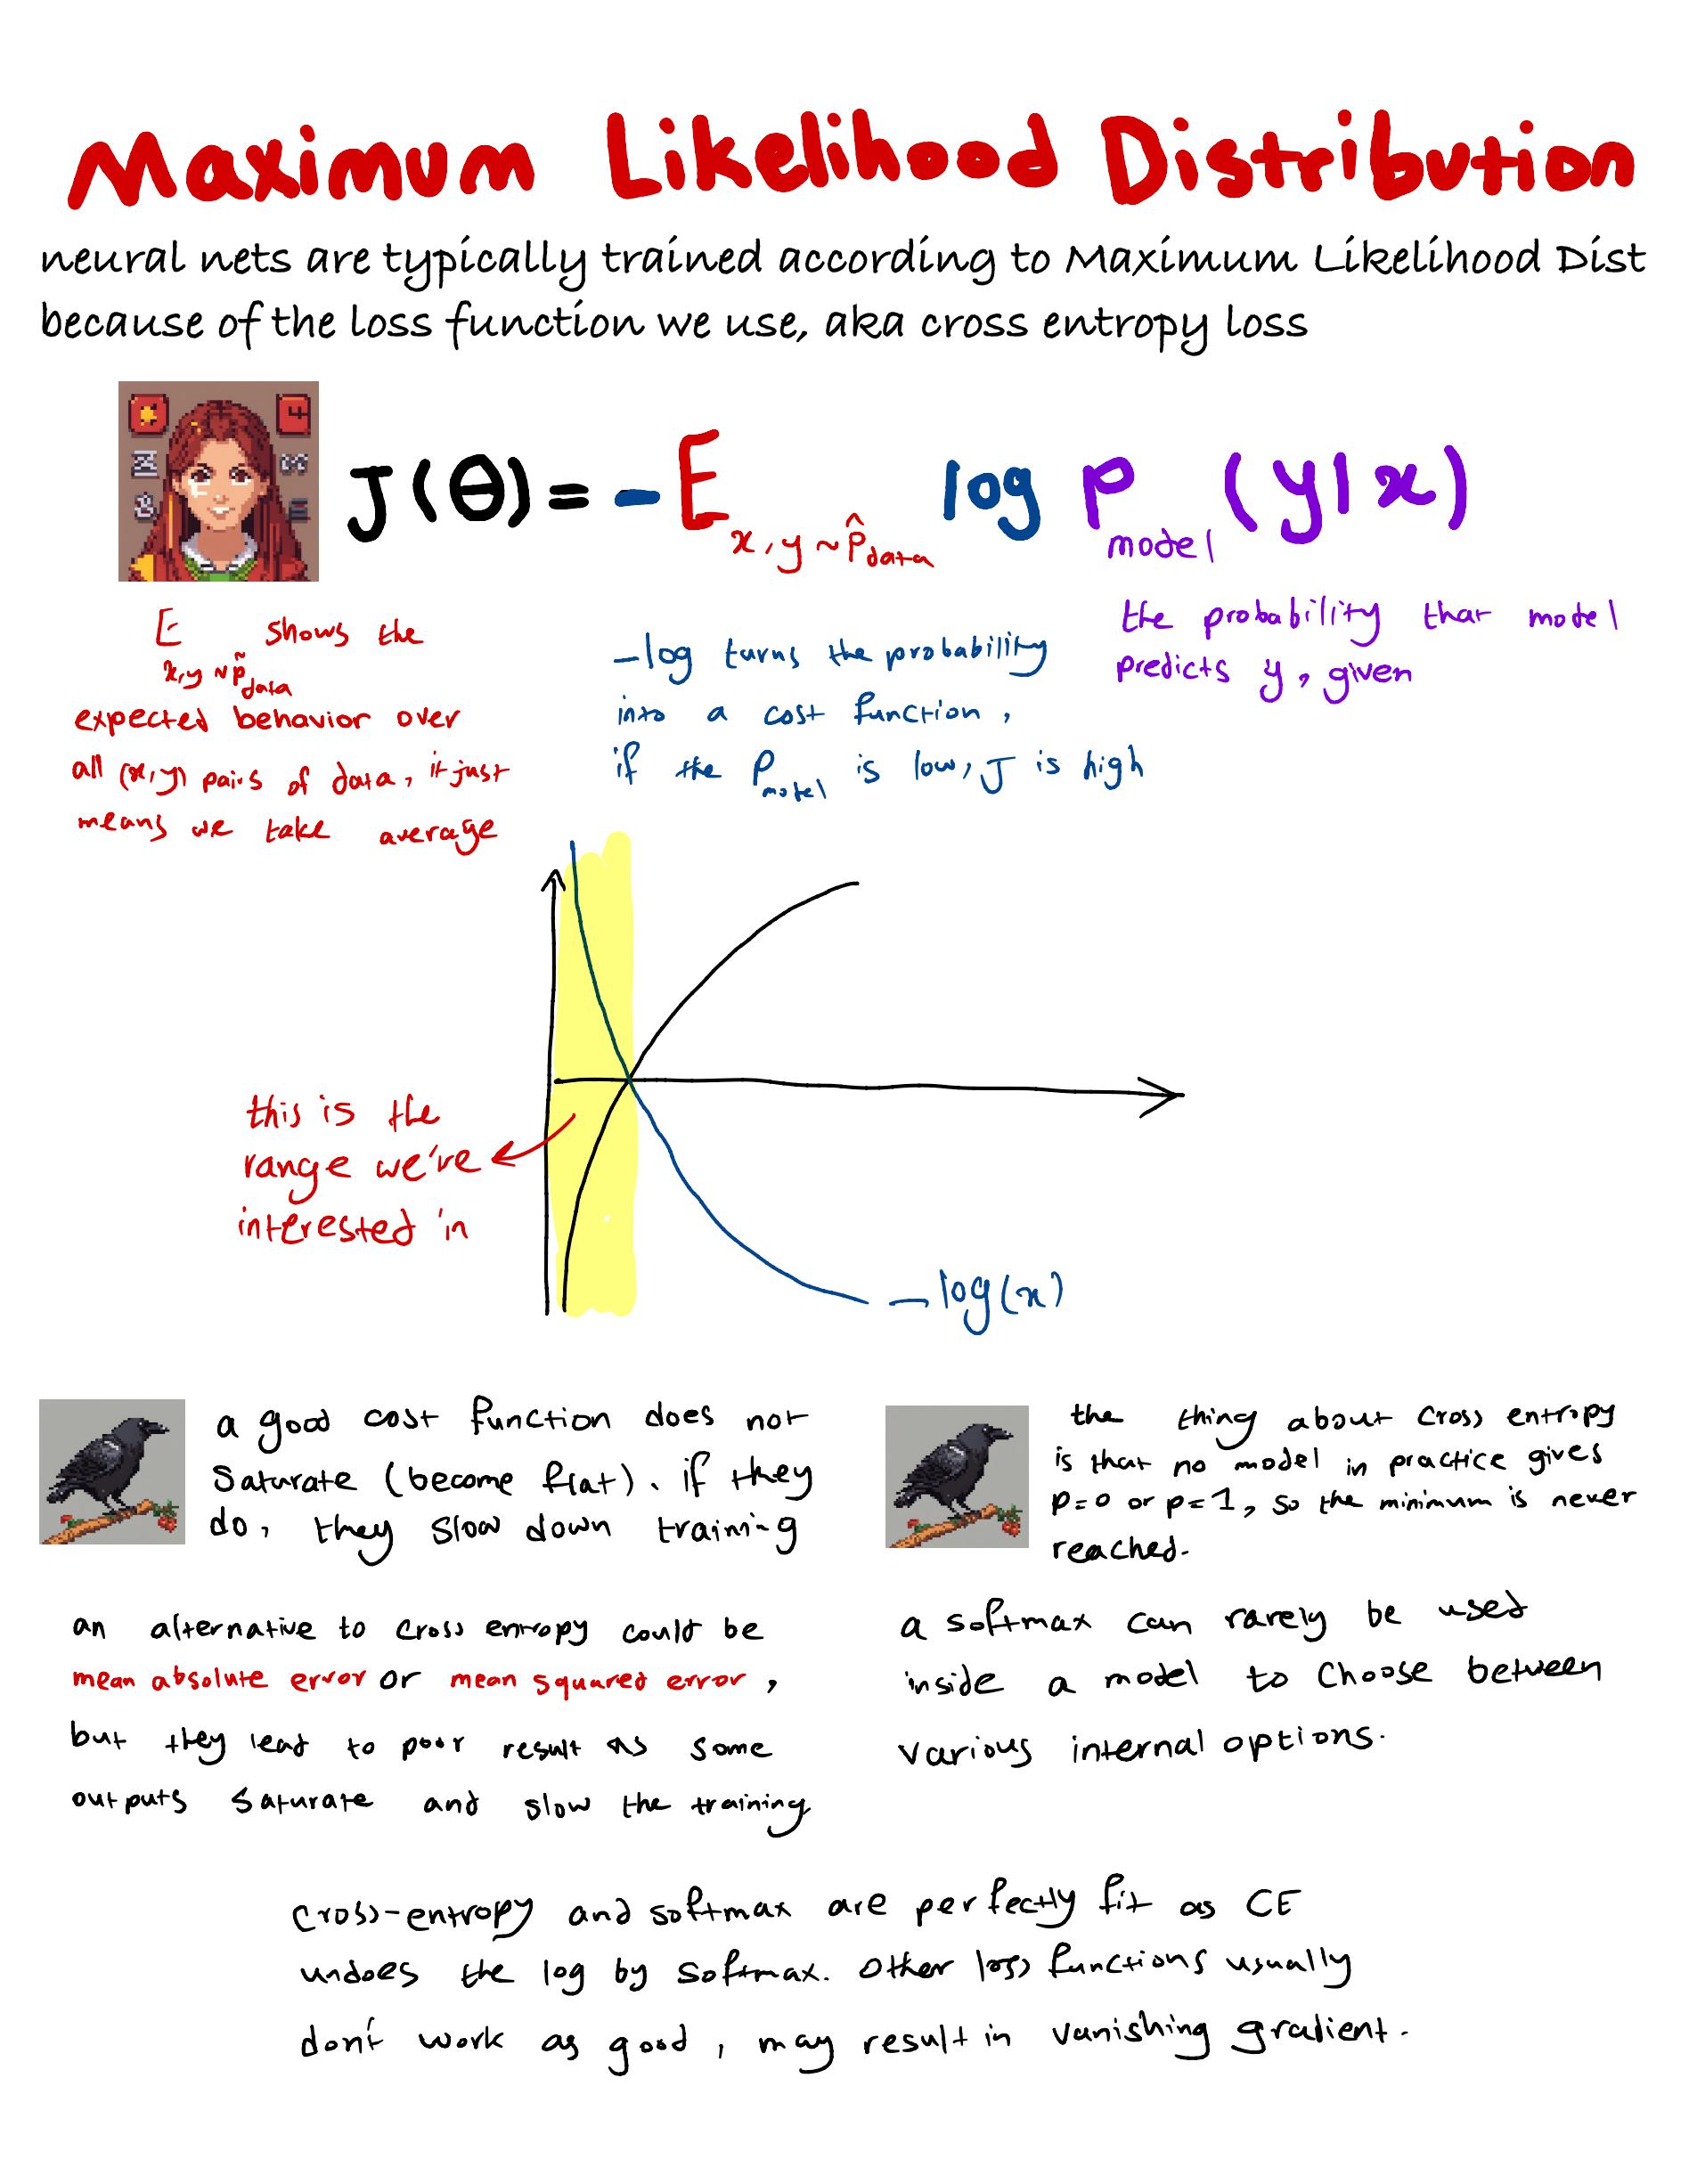 Maximum Likelihood Distribution
neural nets are typically trained according to Maximum Likelihood Dist
because of the loss function we use, aka cross entropy loss
J(θ) = - E x,y~p̂data log p model (y|x)
E x,y~p̃data shows the
expected behavior over
all (x,y) pairs of data, it just
means we take average
-log turns the probability
into a cost function,
if the P model is low, J is high
the probability that model
predicts y, given
this is the
range we're
interested in
-log(x)
a good cost function does not
saturate (become flat). if they
do, they slow down training
the thing about cross entropy
is that no model in practice gives
p=0 or p=1, so the minimum is never
reached.
an alternative to cross entropy could be
mean absolute error or mean squared error,
but they lead to poor result as some
outputs saturate and slow the training
a softmax can rarely be used
inside a model to choose between
various internal options.
cross-entropy and softmax are perfectly fit as CE
undoes the log by softmax. Other loss functions usually
don't work as good, may result in vanishing gradient.